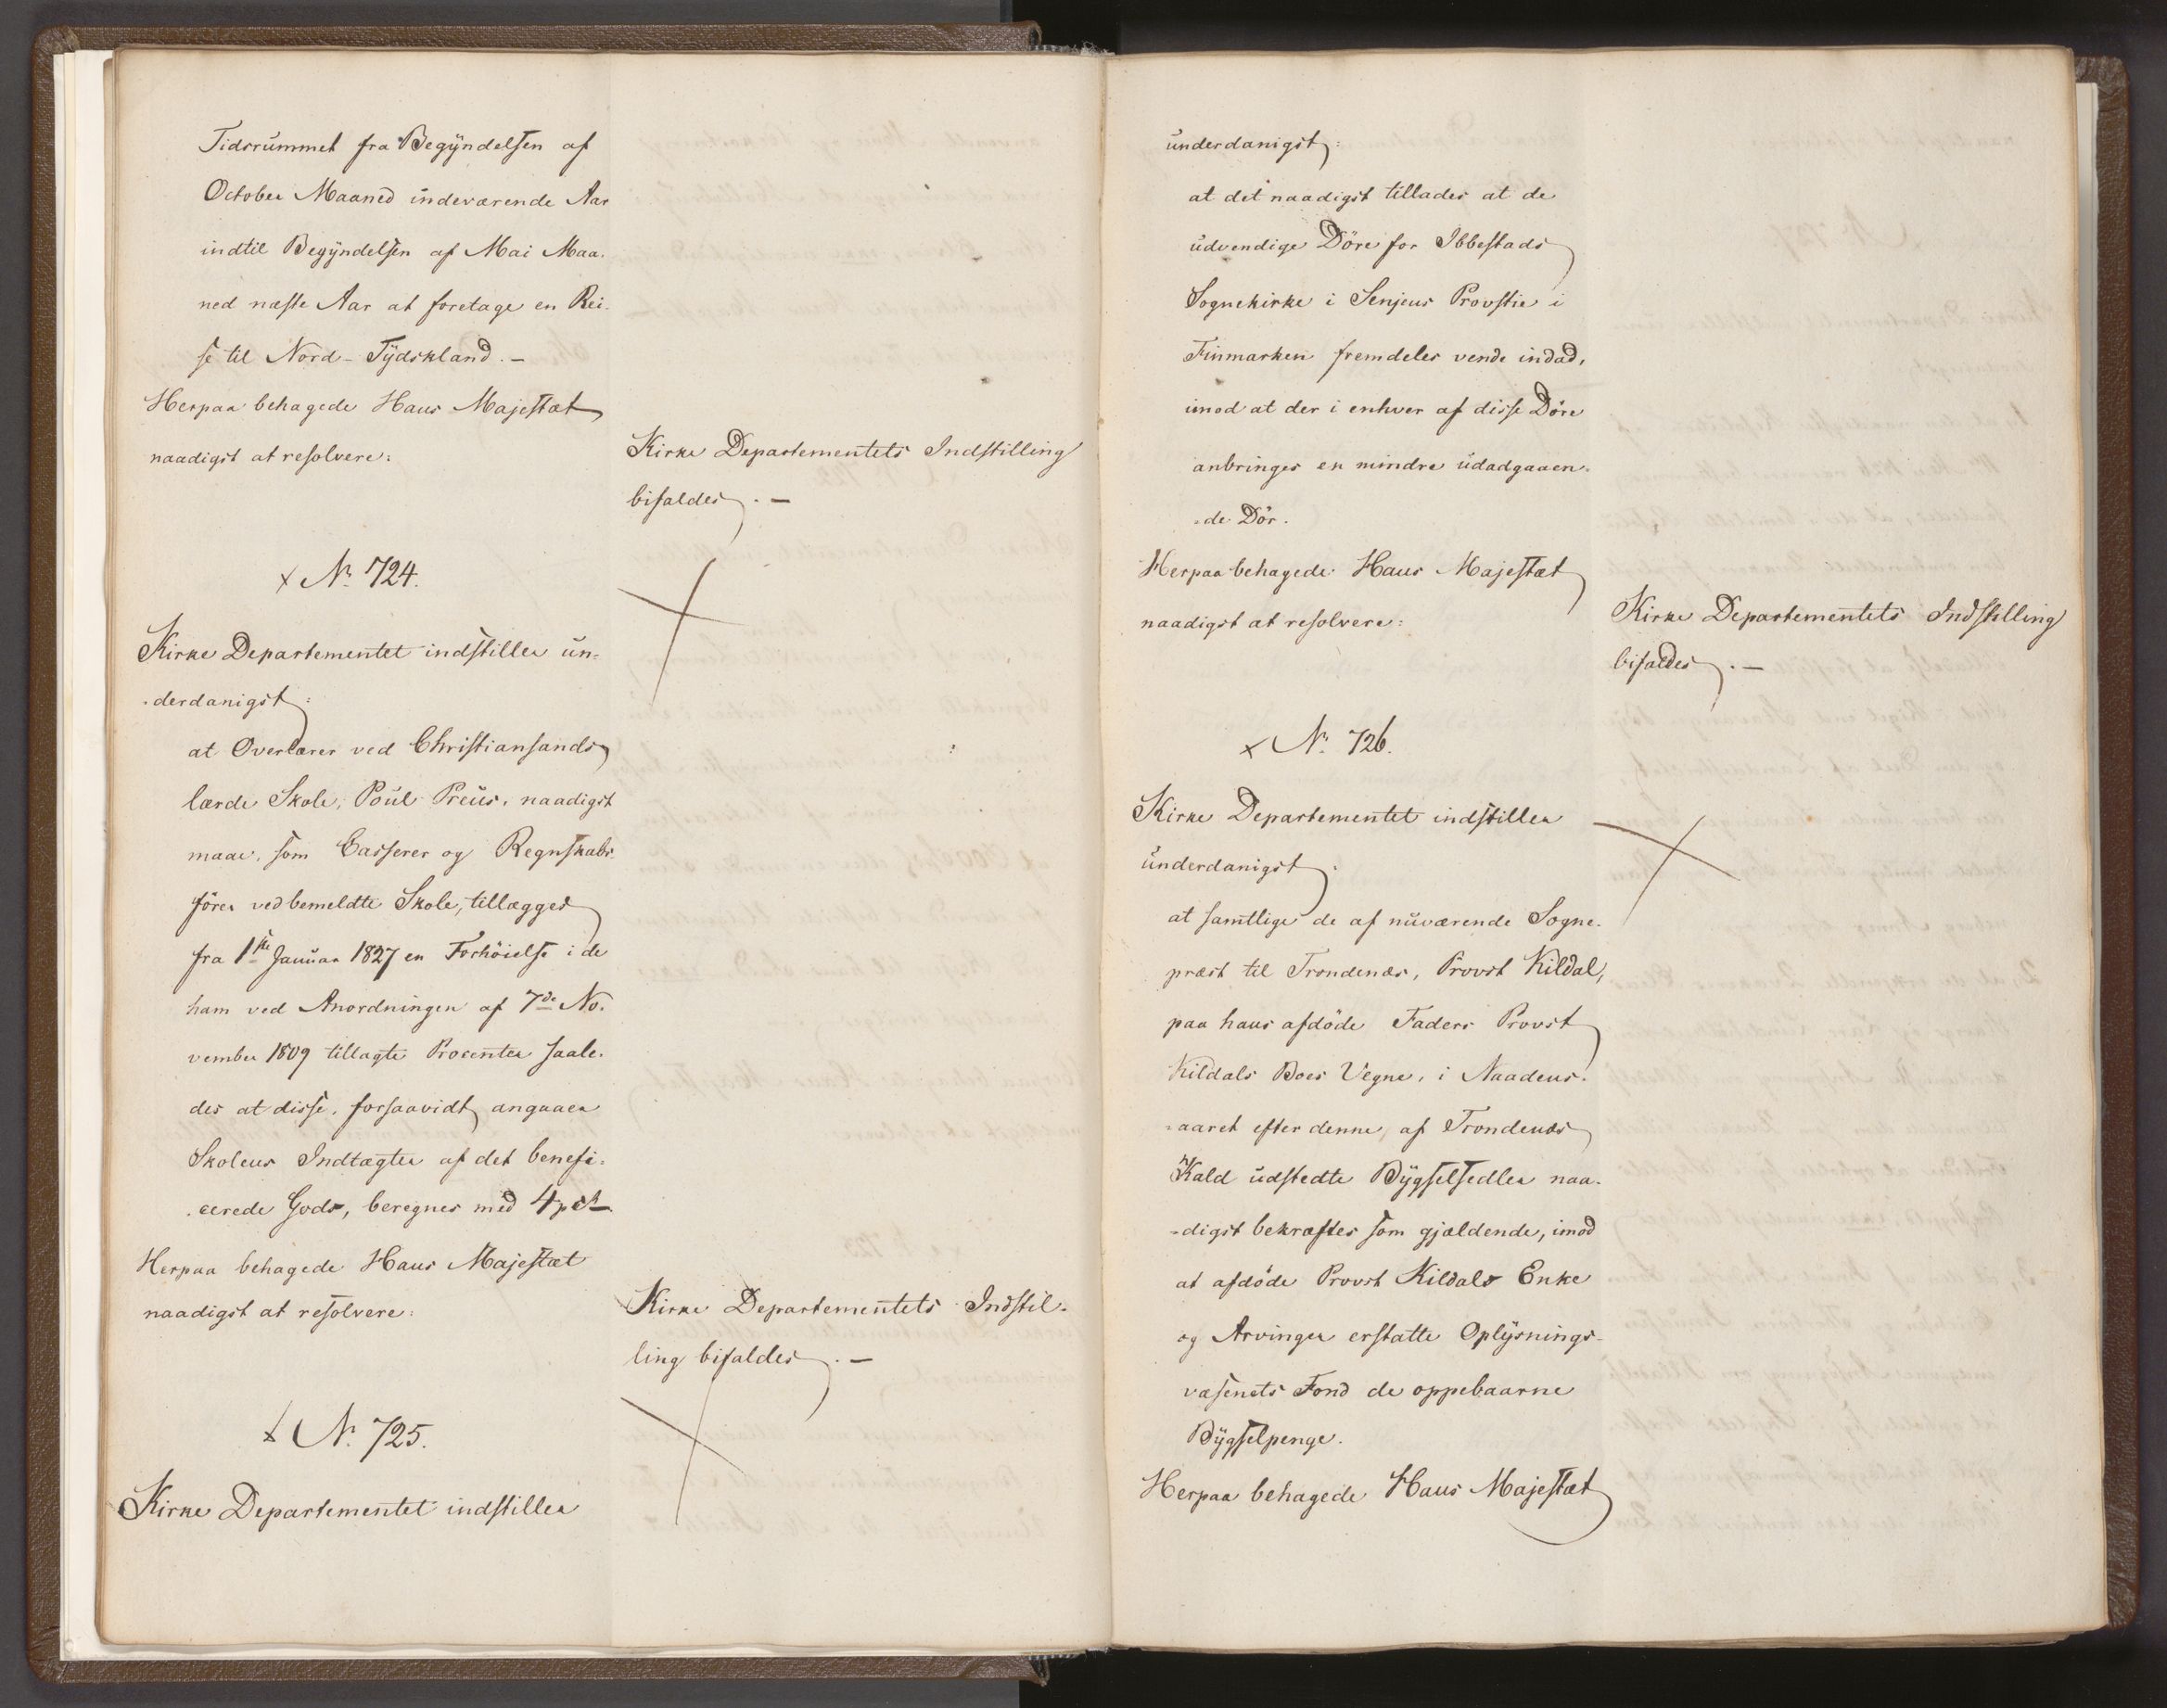 Tidsrummet fra Begyndelsen af
October Maaned indeværende Aar
indtil Begyndelsen af Mai Maa-
ned næste Aar at foretage en Rei-
se til Nord-Tydskland. –
Herpaa behagede Hans Majestæt
naadigst at resolvere:
Kirke Departementets Indstilling
bifaldes. –
× No 724.
Kirke Departementet indstiller un-
derdanigst:
at Overlærer ved Christiansands
lærde Skole, Poul Preus, naadigst
maae, som Casserer og Regnskabs-
fører ved bemeldte Skole, tillægges
fra 1ste Januar 1827 en Forhøielse i de
ham ved Anordningen af 7de No-
vember 1809 tillagte Procenter saale-
des at disse, forsaavidt angaaer
Skolens Indtægter af det benefi-
cerede Gods, beregnes med 4 pCt.
Herpaa behagede Hans Majestæt
naadigst at resolvere:
Kirke Departementets Indstil-
ling bifaldes. –
× No 725.
Kirke Departementet indstiller
underdanigst:
at det naadigst tillades at de
udvendige Döre for Ibbestads
Sognekirke i Senjens Provstie i
Finmarken fremdeles vende indad,
imod at der i enhver af disse Döre
anbringes en mindre udadgaaen-
de Dör.
Herpaa behagede Hans Majestæt
naadigst at resolvere:
Kirke Departementets Indstilling
bifaldes. –
× No 726.
Kirke Departementet indstiller
underdanigst:
at samtlige de af nuværende Sogne-
præst til Trondenæs, Provst Kildal,
paa hans afdöde Faders Provst
Kildals Boes Vegne, i Naadens-
aaret efter denne, af Trondenæs
Kald udstedte Bygselsedler naa-
digst bekræftes som gjældende, imod
at afdöde Provst Kildals Enke
og Arvinger erstatte Oplysnings-
væsenets Fond de oppebaarne
Bygselpenge.
Herpaa behagede Hans Majestæt